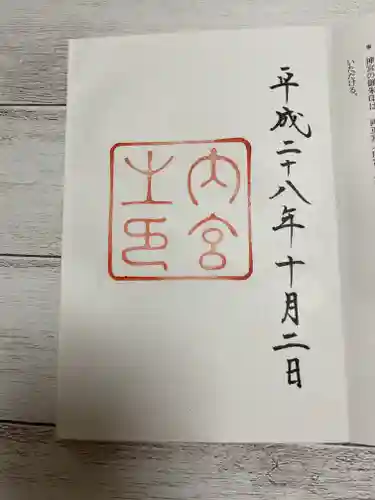 神宮の御朱印は
いただける。
平成二十八年十月二日
内宮
之印